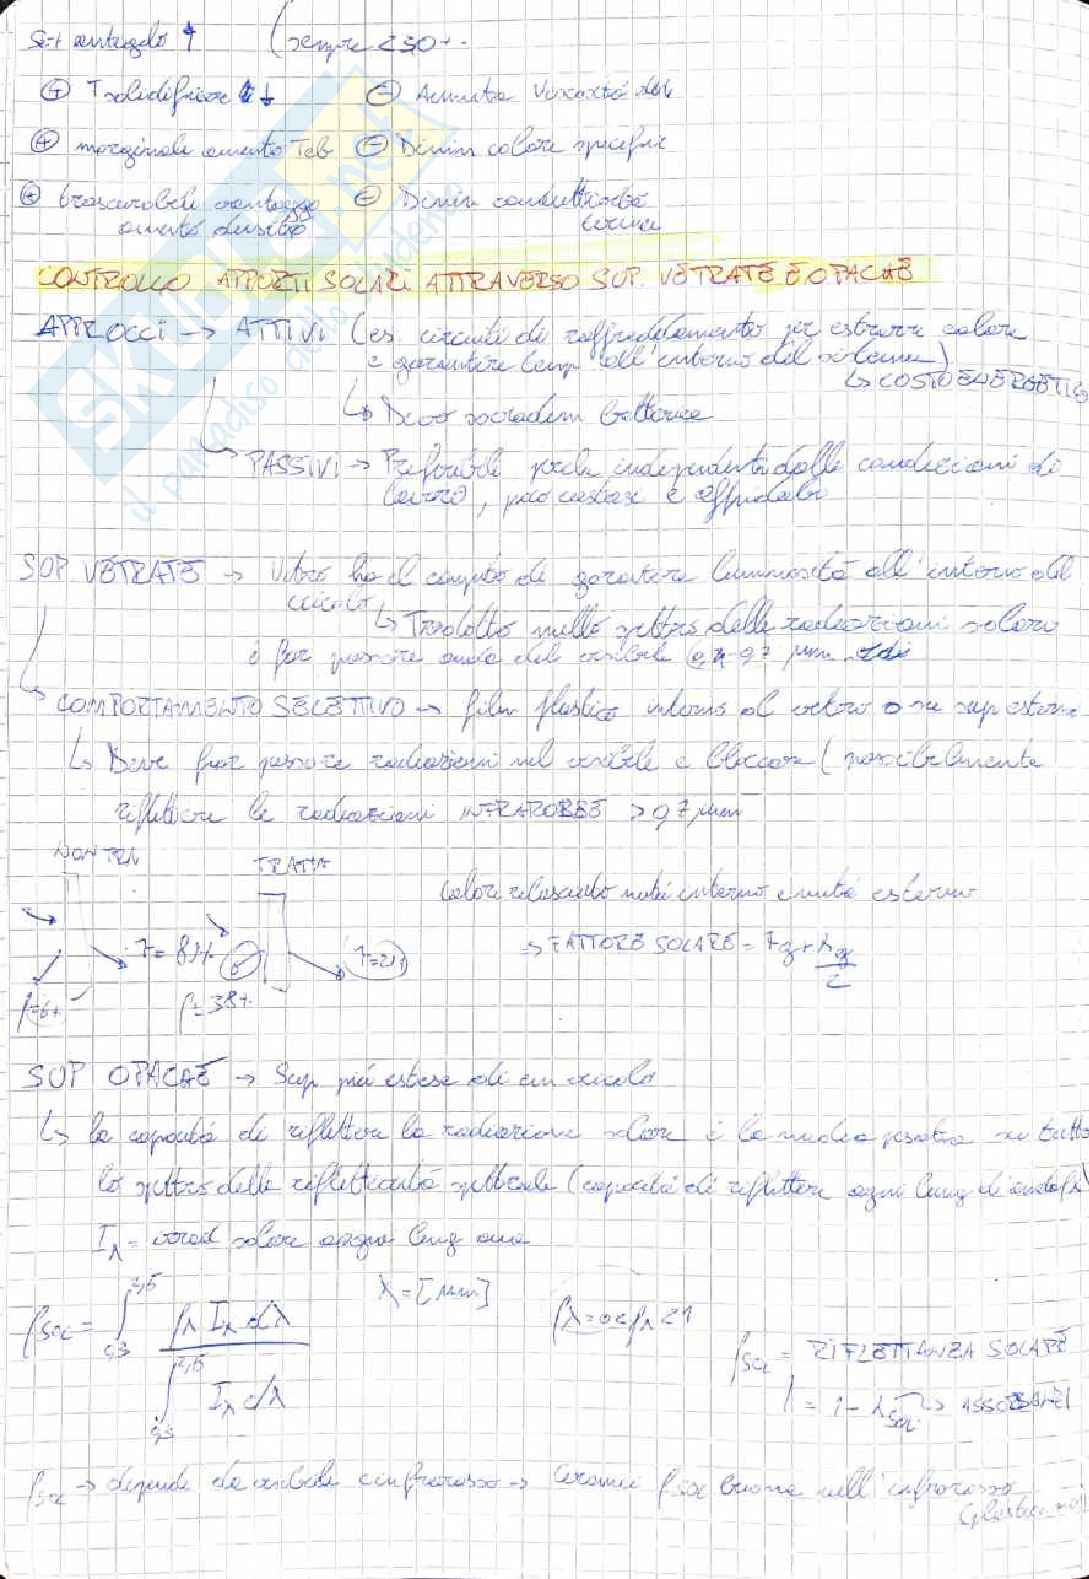 Se + antigelo ↑ (sempre < 50%
⊕ T solidificaz ↓ ⊖ Aumenta viscosità del
⊕ marginale aumento Teb ⊖ Dimin calore specific
⊕ trascurabile vantaggio ⊖ Dimin conduttività
aumento densità termica
CONTROLLO APPORTI SOLARI ATTRAVERSO SUP. VETRATE E OPACHE
APPROCCI → ATTIVI (es. circuiti di raffreddamento per estrarre calore
e garantire temp all'interno del sistema)
↳ COSTO ENERGETICO
↳ Devo
↳ PASSIVI → Preferibili perché indipendenti dalle condizioni di
lavoro, poco costose e affidabi
SUP. VETRATE → Vetro ha il compito di garantire luminosità all'interno del
veicolo
↳ Tradotto nello spettro delle radiazioni solari
è far passare onde del visibile 0,4-0,7 μm
↳ COMPORTAMENTO SELETTIVO → film plastico interno al vetro o su sup esterna
↳ Deve far passare radiazioni nel visibile e bloccare (possibilmente
riflettere le radiazioni INFRAROSSE > 0,7 μm
NON TRA TRATTA
calore rilasciato
esterno
⇒ FATTORE SOLARE =
ρ = 38%
SUP OPACHE → Sup più estese di un veicolo
↳ la capacità di riflettere la radiazione solare è la media pesata su tutto
lo spettro della riflettività spettrale (capacità di riflettere ogni lung di onda ρλ)
Iλ = irrad solare ogni lung onda
λ = [μm]
ρsol = ∫ ρλ Iλ dλ
∫ Iλ dλ
ρλ = 0 < ρλ < 1
ρsol = RIFLETTANZA SOLARE
ρsol → dipende da visibile e infrarosso → ρsol buona nell'infrarosso